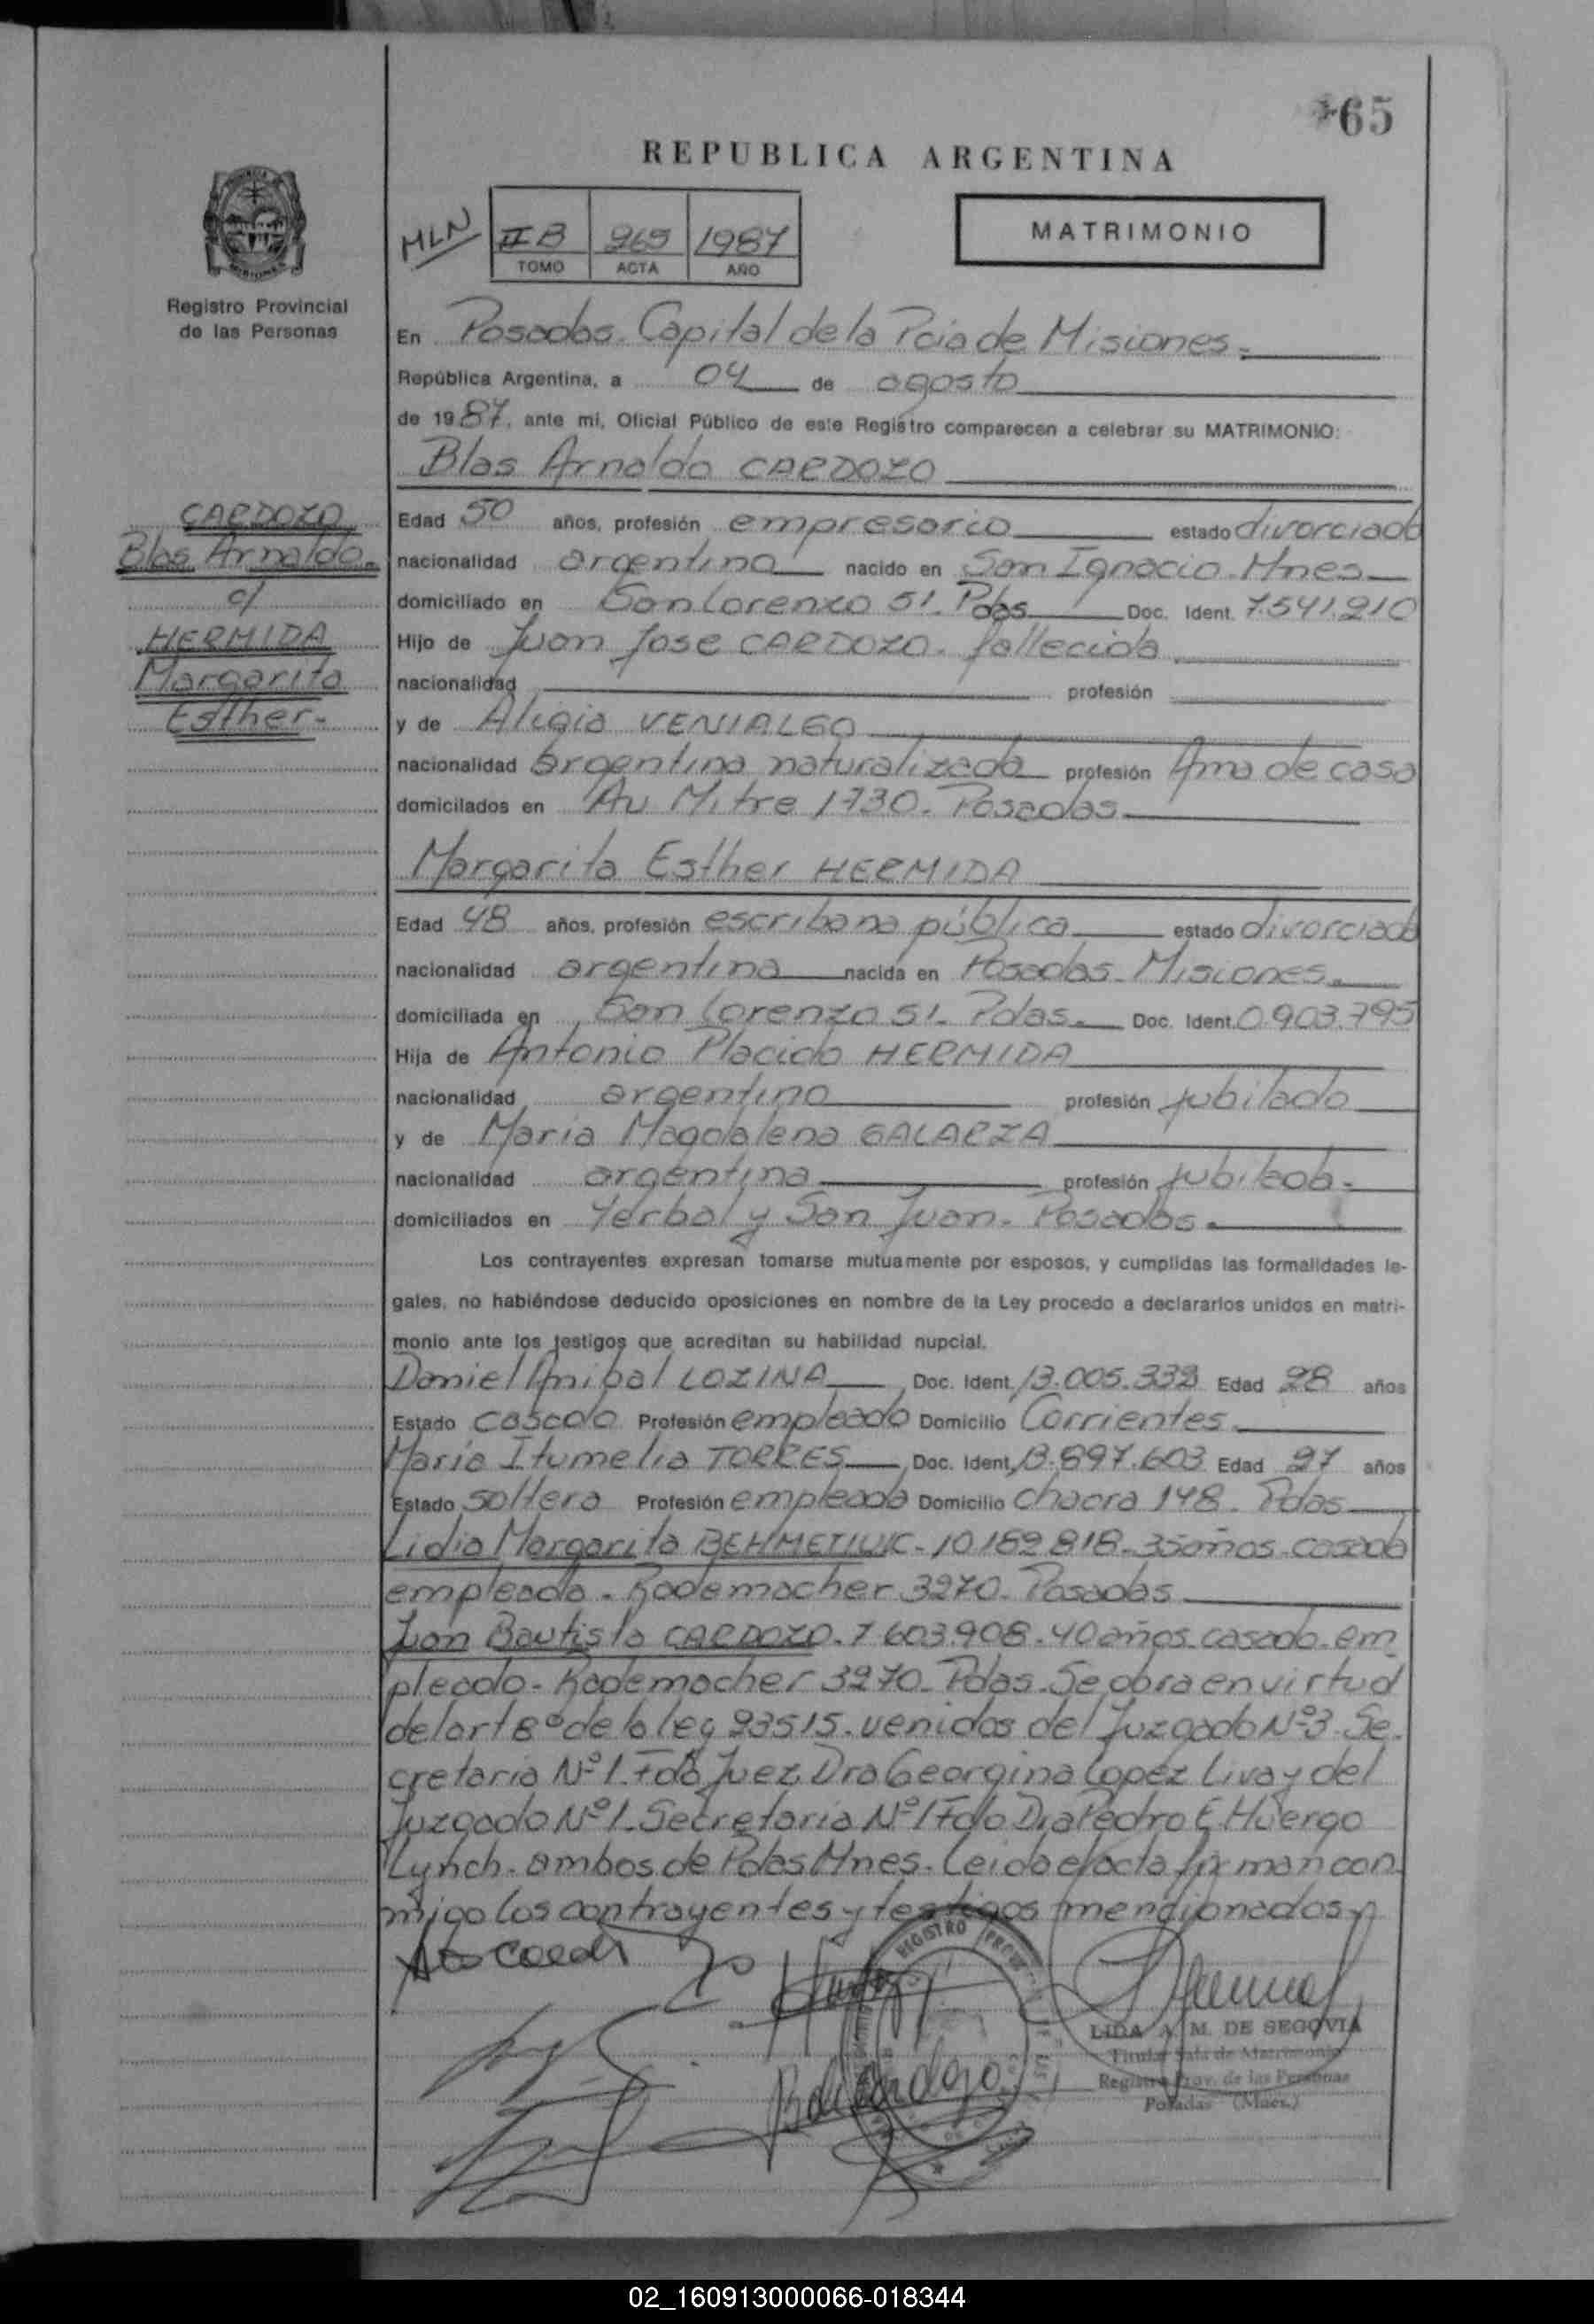 65
REPUBLICA ARGENTINA
MLN
II B 265 1987
TOMO ACTA AÑO
MATRIMONIO
Registro Provincial
de las Personas
En Posadas. Capital de la Pcia de Misiones.
República Argentina, a 04 de agosto
de 1987, ante mi, Oficial Público de este Registro comparecen a celebrar su MATRIMONIO:
Blas Arnaldo CARDOZO
CARDOZO
Blas Arnaldo.
c/
HERMIDA
Margarita
Esther-
Edad 50 años, profesión empresario estado divorciado
nacionalidad argentina nacido en San Ignacio. Mnes
domiciliado en San Lorenzo 51. Pdas Doc. Ident. 7.541.210
Hijo de Juan Jose CARDOZO. fallecido
nacionalidad profesión
y de Aligia VENIALGO
nacionalidad argentina naturalizada profesión Ama de casa
domicilados en Av Mitre 1730. Posadas
Margarita Esther HERMIDA
Edad 48 años, profesión escribana pública estado divorciada
nacionalidad argentina nacida en Posadas. Misiones
domiciliada en San Lorenzo 51. Pdas. Doc. Ident. 0.903.795
Hija de Antonio Placido HERMIDA
nacionalidad argentino profesión jubilado
y de Maria Magdalena GALARZA
nacionalidad argentina profesión jubilada.
domiciliados en Yerbal y San Juan. Posadas.
Los contrayentes expresan tomarse mutuamente por esposos, y cumplidas las formalidades le-
gales, no habiéndose deducido oposiciones en nombre de la Ley procedo a declararlos unidos en matri-
monio ante los testigos que acreditan su habilidad nupcial.
Daniel Anibal LOZINA Doc. Ident. 13.005.332 Edad 28 años
Estado casado Profesión empleado Domicilio Corrientes
Maria Itumelia TORRES Doc. Ident. 13.897.603 Edad 27 años
Estado soltera Profesión empleada Domicilio chacra 148. Pdas
Lidia Margarita 10.182.818. 35 años. casada
empleada. Rademacher 3270. Posadas
Juan Bautista CARDOZO. 7.603.908. 40 años. casado. em
pleado. Rademacher 3270. Pdas. Se obra en virtud
del art 8º de la ley 23515. venidos del Juzgado Nº 3. Se.
cretaria Nº 1. Fdo Juez Dra Georgina Lopez Liva y del
Juzgado Nº 1. Secretaria Nº 1 Fdo Pedro E Huergo
Lynch. ambos de Pdas Mnes. Leida el acta firman con
migo los contrayentes y testigos mencionados
REGISTRO
LIDA A. M. DE SEGOVIA
Titular Sala de Matrimonio
Registro Prov. de las Personas
Posadas (Mnes.)
02_160913000066-018344